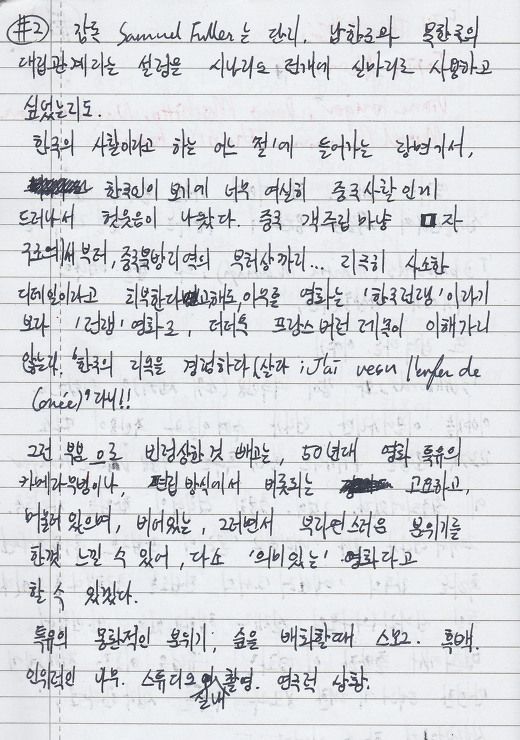 #2) 감독 Samuel Fuller는 단지, 남한군과 북한군의
대립관계라는 설정을 시나리오 전개에 실마리로 사용하고
싶었는지도.
한국의 사찰이라고 하는 어느 '절'에 들어가는 장면에서,
한국인이 보기에 너무 여실히 중국사찰인게
드러나서 헛웃음이 나왔다. 중국 객주집 마냥 ㅁ자
구조에서부터, 중국북방지역의 무려상까지... 지극히 사소한
디테일이라고 치부한다고해도, 아무튼 영화는 '한국전쟁'이라기
보다 '전쟁' 영화로, 더더욱 프랑스버전 제목이 이해가니
않는다. '한국의 지옥을 경험하다(살다 ; J'ai vécu l'enfer de
Corée)'라니!!
그런 부분으로 빈정상한것 빼고는, 50년대 영화 특유의
카메라무빙이나, 편집방식에서 비롯되는 고요하고,
머물러 있으며, 비어있는, 그러면서 부자연스러움 분위기를
한껏 느낄 수 있어, 다소 '의미있는' 영화라고
할 수 있겠다.
특유의 몽환적인 분위기; 숲을 배회할때 스모그. 흑백.
인위적인 나무. 스튜디오 실내 촬영. 연극적 상황.